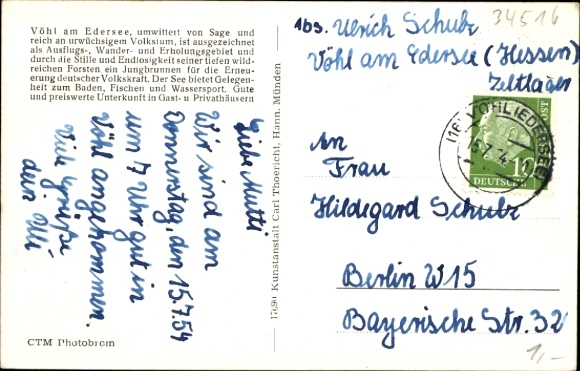 Vöhl am Edersee, umwittert von Sage und
reich an urwüchsigem Volkstum, ist ausgezeichnet
als Ausflugs-, Wander- und Erholungsgebiet und
durch die Stille und Endlosigkeit seiner tiefen wild-
reichen Forsten ein Jungbrunnen für die Erneu-
erung deutscher Volkskraft. Der See bietet Gelegen-
heit zum Baden, Fischen und Wassersport. Gute
und preiswerte Unterkunft in Gast- u. Privathäusern
Liebe Mutti
Wir sind am
Donnerstag, den 15.7.54
um 7 Uhr gut in
Vöhl angekommen.
Viele Grüße
dein Uli
CTM Photobrom
17690 Kunstanstalt Carl Thoericht, Hann. Münden
34516
Abs. Ulrich Schulz
Vöhl am Edersee (Hessen)
Zeltlager
(16) VÖHL
POST
12
DEUTSCHE
An
Frau
Hildegard Schulz
Berlin W15
Bayerische Str. 32
1,-